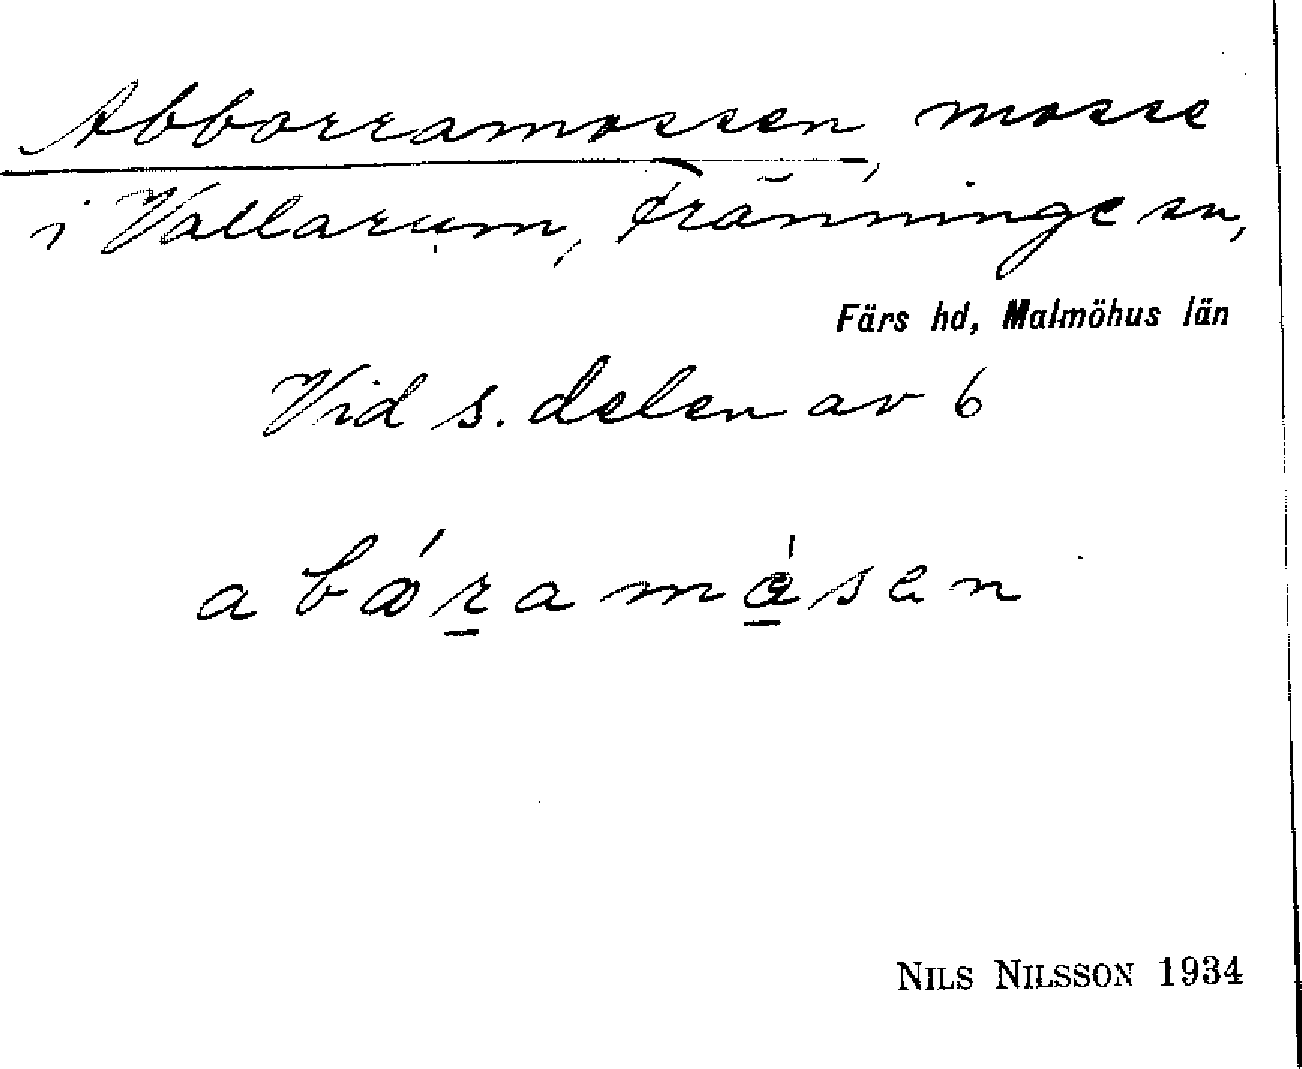 Abborramossen, mosse
i Vallarum, Fränninge sn,
Färs hd, Malmöhus län
Vid s. delen av 6
NILS NILSSON 1934